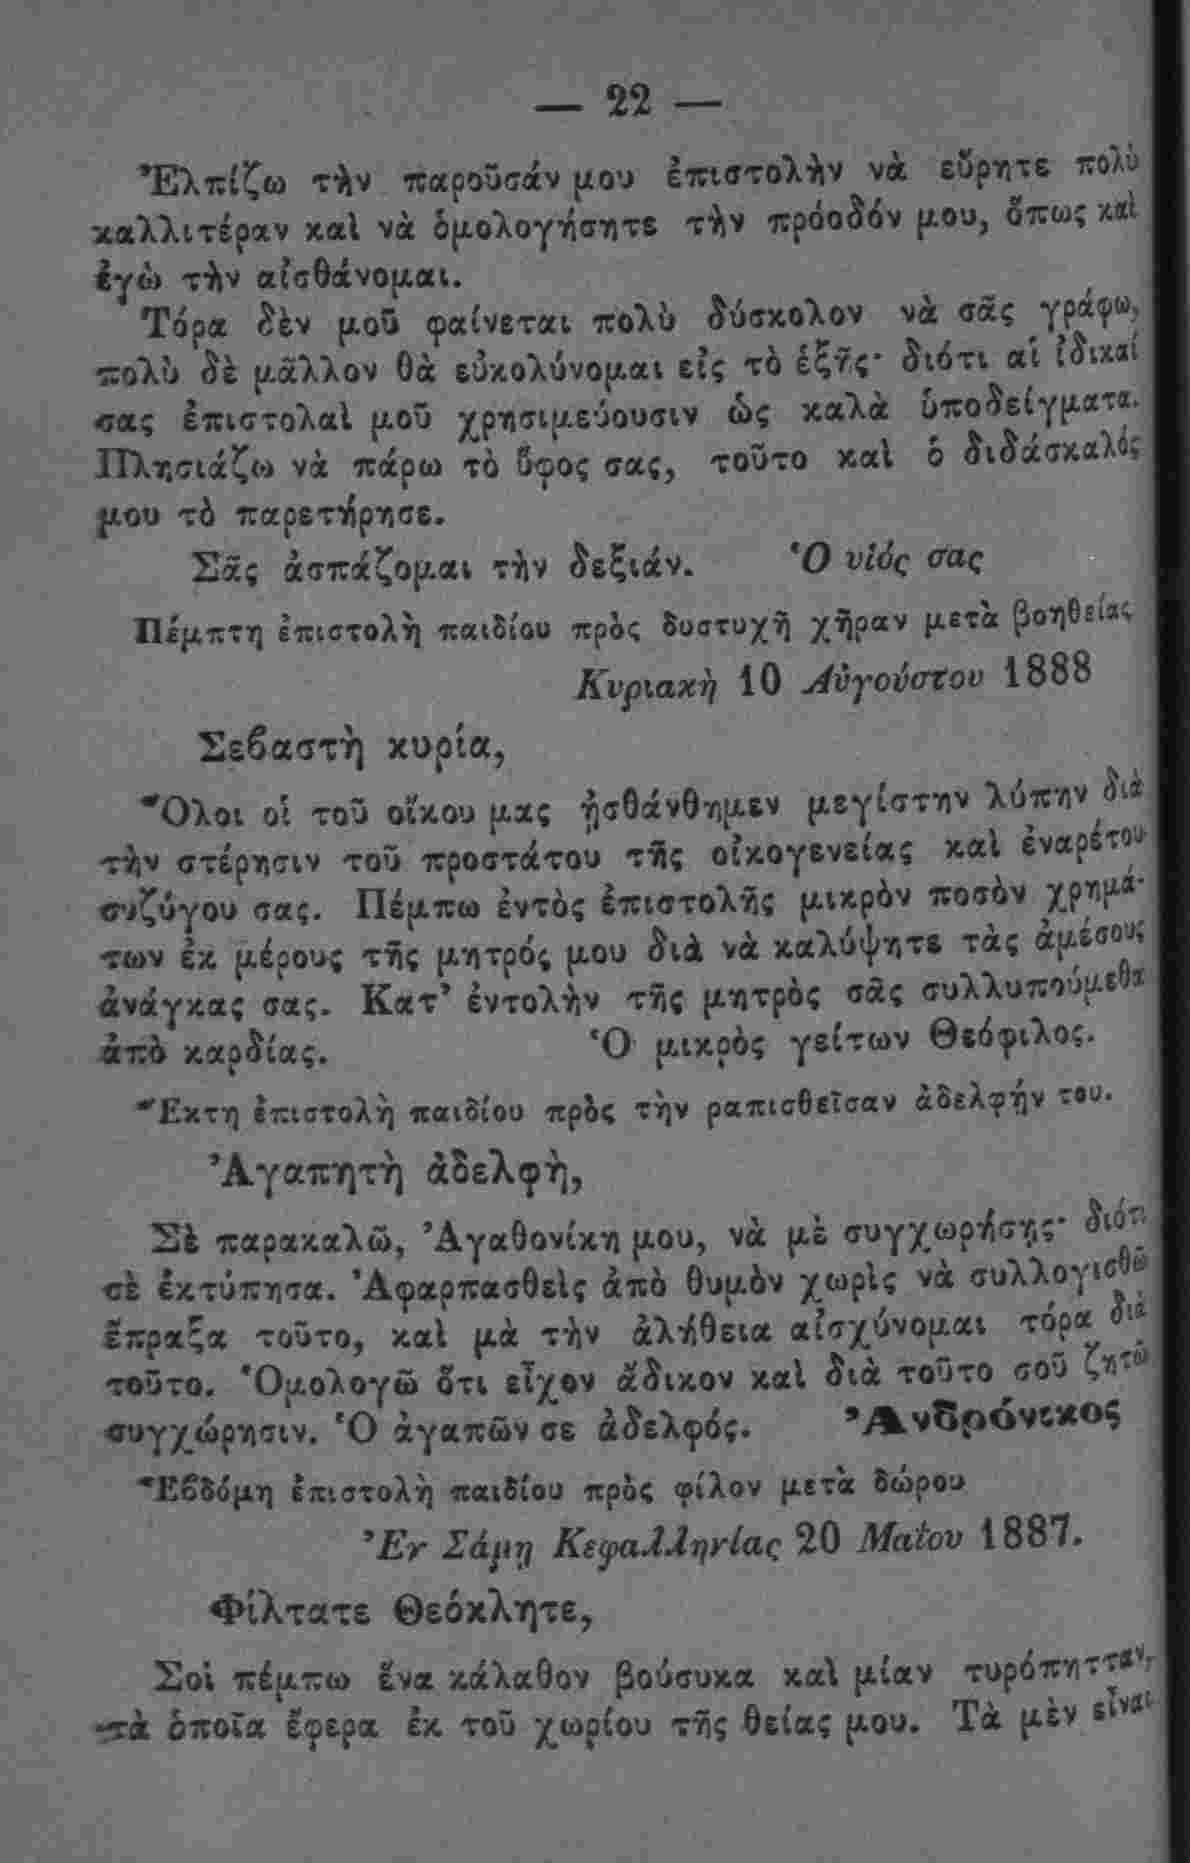 — 22 —
Ἐλπίζω τὴν παροῦσάν μου ἐπιστολὴν νὰ εὕρητε πολὺ
καλλιτέραν καὶ νὰ ὁμολογήσητε τὴν πρόοδόν μου, ὅπως καὶ
ἐγὼ τὴν αἰσθάνομαι.
Τόρα δὲν μοῦ φαίνεται πολὺ δύσκολον νὰ σᾶς γράφω,
πολὺ δὲ μᾶλλον θὰ εὐκολύνομαι εἰς τὸ ἑξῆς· διότι αἱ ἰδικαί
σας ἐπιστολαὶ μοῦ χρησιμεύουσιν ὡς καλὰ ὑποδείγματα.
Πλησιάζω νὰ πάρω τὸ ὕφος σας, τοῦτο καὶ ὁ διδάσκαλός
μου τὸ παρετήρησε.
Σᾶς ἀσπάζομαι τὴν δεξιάν. Ὁ υἱός σας
Πέμπτη ἐπιστολὴ παιδίου πρὸς δυστυχῆ χῆραν μετὰ βοηθείας
Κυριακὴ 10 Αὐγούστου 1888
Σεβαστὴ κυρία,
Ὅλοι οἱ τοῦ οἴκου μας ᾐσθάνθημεν μεγίστην λύπην διὰ
τὴν στέρησιν τοῦ προστάτου τῆς οἰκογενείας καὶ ἐναρέτου
συζύγου σας. Πέμπω ἐντὸς ἐπιστολῆς μικρὸν ποσὸν χρημά-
των ἐκ μέρους τῆς μητρός μου διὰ νὰ καλύψητε τὰς ἀμέσους
ἀνάγκας σας. Κατ’ ἐντολὴν τῆς μητρὸς σᾶς συλλυπούμεθα
ἀπὸ καρδίας. Ὁ μικρὸς γείτων Θεόφιλος.
Ἕκτη ἐπιστολὴ παιδίου πρὸς τὴν ραπισθεῖσαν ἀδελφήν του.
Ἀγαπητὴ ἀδελφὴ,
Σὲ παρακαλῶ, Ἀγαθονίκη μου, νὰ μὲ συγχωρήσῃς· διότι
σὲ ἐκτύπησα. Ἀφαρπασθεὶς ἀπὸ θυμὸν χωρὶς νὰ συλλογισθῶ
ἔπραξα τοῦτο, καὶ μὰ τὴν ἀλήθεια αἰσχύνομαι τόρα διὰ
τοῦτο. Ὁμολογῶ ὅτι εἶχον ἄδικον καὶ διὰ τοῦτο σοῦ ζητῶ
συγχώρησιν. Ὁ ἀγαπῶν σε ἀδελφός. Ἀνδρόνικος
Ἑβδόμη ἐπιστολὴ παιδίου πρὸς φίλον μετὰ δώρου
Ἐν Σάμῃ Κεφαλληνίας 20 Μαΐου 1887.
Φίλτατε Θεόκλητε,
Σοὶ πέμπω ἕνα κάλαθον βούσυκα καὶ μίαν τυρόπητταν,
τὰ ὁποῖα ἔφερα ἐκ τοῦ χωρίου τῆς θείας μου. Τὰ μὲν εἶναι